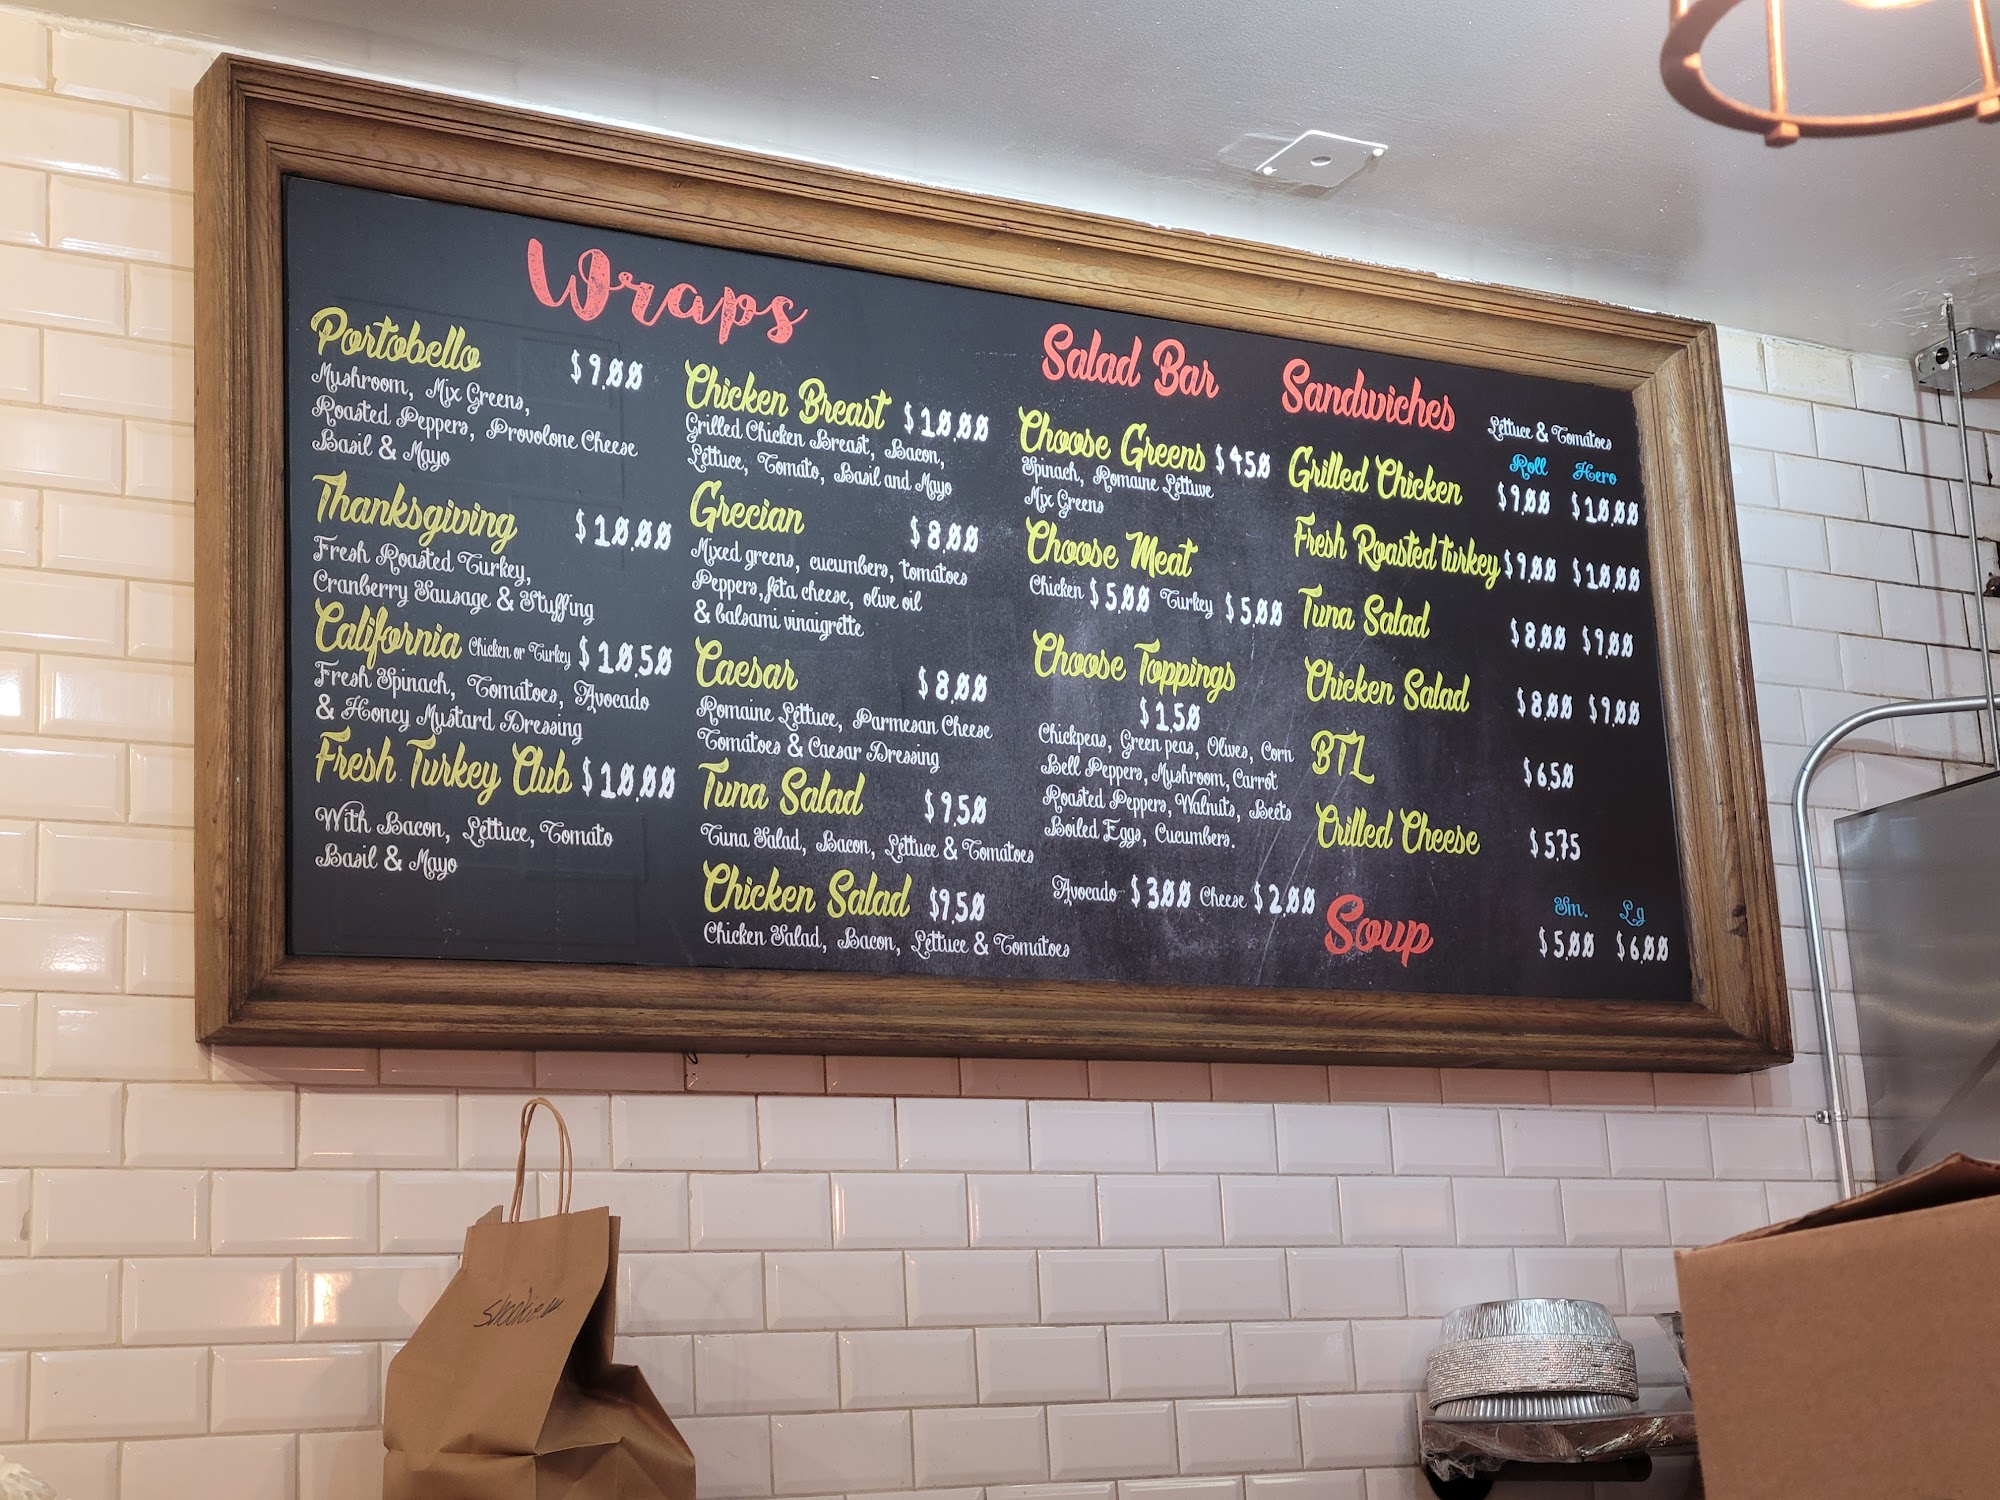 Wraps
Portobello $9.00
Mushroom, Mix Greens,
Roasted Peppers, Provolone Cheese
Basil & Mayo
Thanksgiving $10.00
Fresh Roasted Turkey,
Cranberry Sausage & Stuffing
California Chicken or Turkey $10.50
Fresh Spinach, Tomatoes, Avocado
& Honey Mustard Dressing
Fresh Turkey Club $10.00
With Bacon, Lettuce, Tomato
Basil & Mayo
Chicken Breast $10.00
Grilled Chicken Breast, Bacon,
Lettuce, Tomato, Basil and Mayo
Grecian $8.00
Mixed greens, cucumbers, tomatoes
Peppers, feta cheese, olive oil
& balsami vinaigrette
Caesar $8.00
Romaine Lettuce, Parmesan Cheese
Tomatoes & Caesar Dressing
Tuna Salad $9.50
Tuna Salad, Bacon, Lettuce & Tomatoes
Chicken Salad $9.50
Chicken Salad, Bacon, Lettuce & Tomatoes
Salad Bar
Choose Greens $4.50
Spinach, Romaine Lettuve
Mix Greens
Choose Meat
Chicken $5.00 Turkey $5.00
Choose Toppings
$1.50
Chickpeas, Green peas, Olives, Corn
Bell Peppers, Mushroom, Carrot
Roasted Peppers, Walnuts, Beets
Boiled Eggs, Cucumbers.
Avocado $3.00 Cheese $2.00
Sandwiches Lettuce & Tomatoes
Roll Hero
Grilled Chicken $9.00 $10.00
Fresh Roasted turkey $9.00 $10.00
Tuna Salad $8.00 $9.00
Chicken Salad $8.00 $9.00
BTL $6.50
Crilled Cheese $5.75
Sm. Lg
Soup $5.00 $6.00